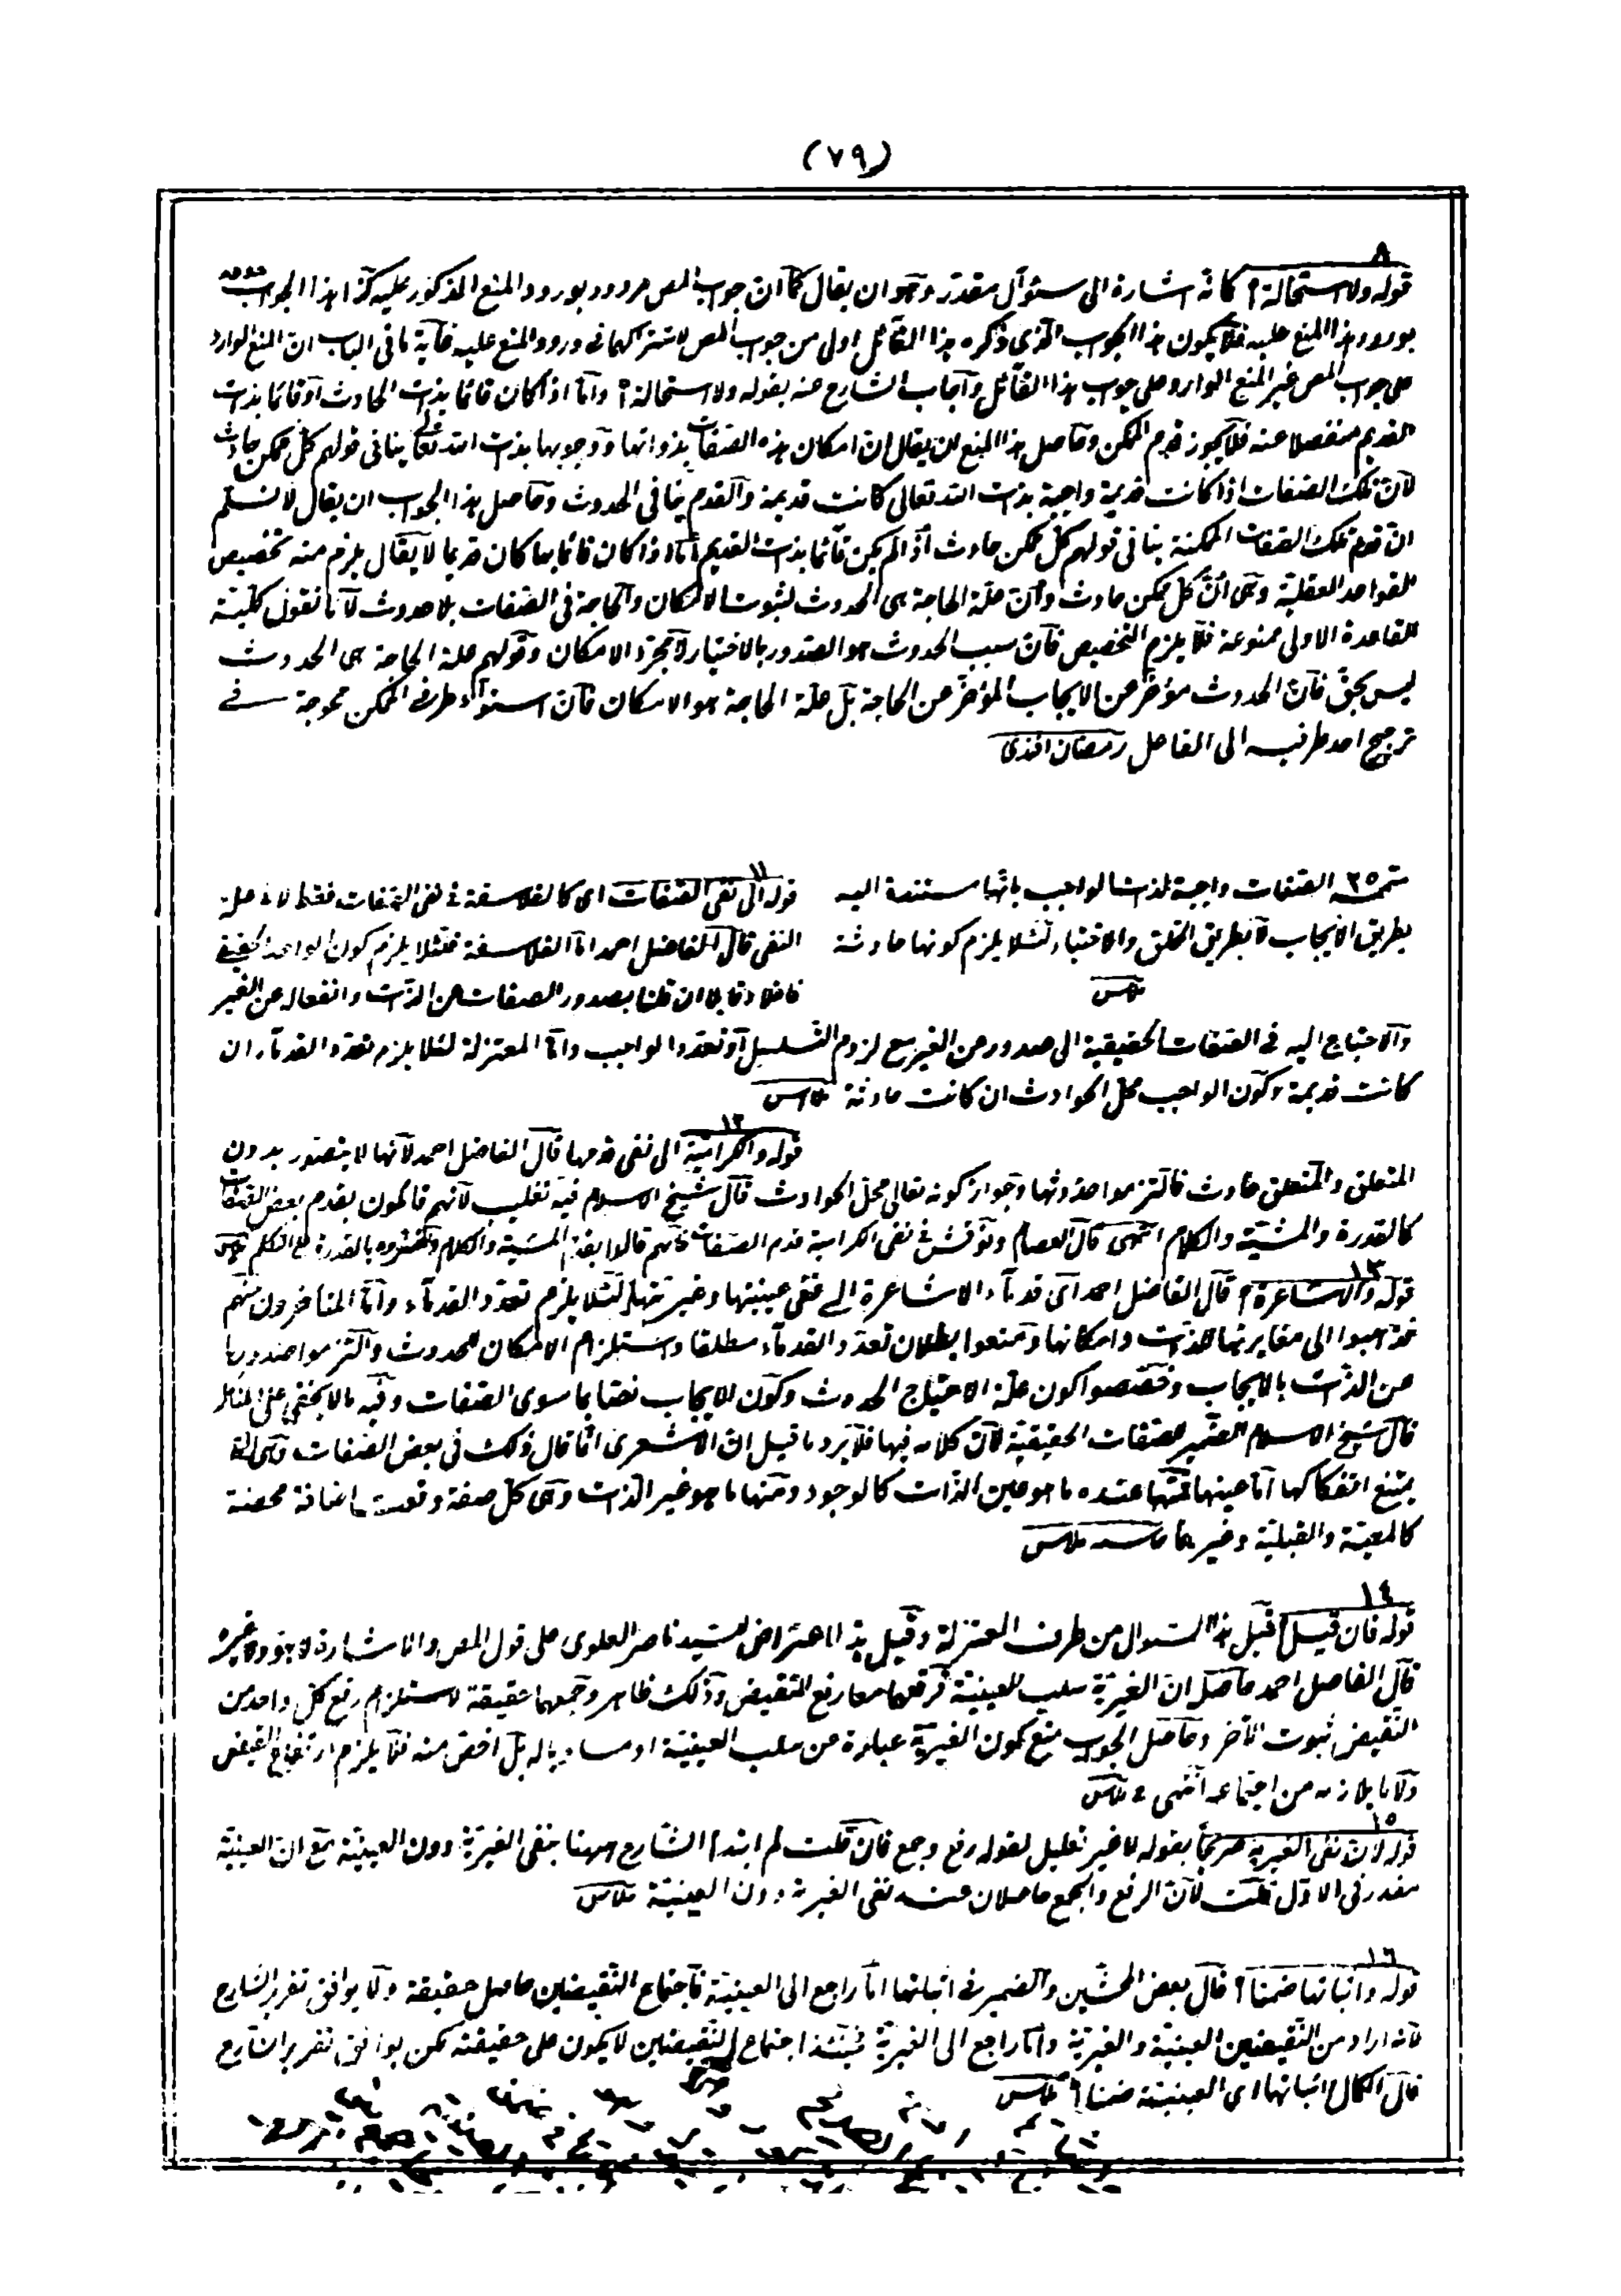 (٧٩)
٨
قوله ولا استحالة ؟ كانه اشارة الى سئوال مقدر وهو ان يقال كما ان جواب المص مردود بورود المنع المذكور عليه كذا هذا الجواب مردود
بورود هذا المنع عليه فلا يكون هذا الجواب الذي ذكره هذا القائل اولى من جواب المص لاشتراكهما في ورود المنع عليه غاية ما في الباب ان المنع الوارد
على جواب المص غير المنع الوارد على جواب هذا القائل واجاب الشارح عنه بقوله ولا استحالة ؟ واما اذا كان قائما بذات الحادث او قائما بذات
القديم منفصلا عنه فلا يجوز قدم الممكن وحاصل هذا المنع ان يقال ان امكان هذه الصفات بذواتها ووجوبها بذات الله تعالى ينافي قولهم كل ممكن حادث
لان تلك الصفات اذا كانت قديمة واجبة بذات الله تعالى كانت قديمة والقدم ينافي الحدوث وحاصل هذا الجواب ان يقال لا نسلم
ان قدم تلك الصفات الممكنة ينافي قولهم كل ممكن حادث اذا لم يكن قائما بذات القديم اما اذا كان قائما بها كان قديما لا يقال يلزم منه تخصيص
القواعد العقلية وهي ان كل ممكن حادث وان علة الحاجة هي الحدوث لثبوت الامكان والحاجة في الصفات بلا حدوث لانا نقول كلية
القاعدة الاولى ممنوعة فلا يلزم التخصيص فان سبب الحدوث هو الصدور بالاختيار لا مجرد الامكان وقولهم علة الحاجة هي الحدوث
ليس بحق فان الحدوث مؤخر عن الايجاب المؤخر عن الحاجة بل علة الحاجة هو الامكان فان استواء طرفي الممكن محوجة في
ترجيح احد طرفيه الى الفاعل رمضان افندى
تتمه ٢٥ الصفات واجبة لذات الواجب بانها مستندة اليه
بطريق الايجاب لا بطريق الخلق والاختيار لئلا يلزم كونها حادثة
١١
قوله الى نفى الصفات اى كالفلاسفة في نفى الصفات فقط لا في علة
النفى قال الفاضل احمد اما الفلاسفة فلئلا يلزم كون الواحد الحقيقي
فاعلا وقابلا ان قلنا بصدور الصفات عن الذات وانفعاله عن الغير
والاحتياج اليه في الصفات الحقيقية الى صدور من الغير مع لزوم التسلسل او تعدد الواجب واما المعتزلة لئلا يلزم تعدد القدماء ان
كانت قديمة وكون الواجب محل الحوادث ان كانت حادثة
١٢
قوله والكرامية الى نفى قدمها قال الفاضل احمد لانها لا يتصور بدون
المتعلق والمتعلق حادث فالتزموا حدوثها وجواز كونه تعالى محل الحوادث قال شيخ الاسلام فيه تغليب لانهم قائلون بقدم بعض الصفات
كالقدرة والمشية والكلام انتهى قال العصام ونوقش في نفى الكرامية قدم الصفات فانهم قالوا بقدم المشية والكلام وفسروه بالقدرة على التكلم
١٣
قوله والاشاعرة ؟ قال الفاضل احمد اى قدماء الاشاعرة الى نفى عينيتها وغيريتها لئلا يلزم تعدد القدماء واما المتاخرون منهم
فذهبوا الى مغايرتها للذات وامكانها ومنعوا بطلان تعدد القدماء مطلقا واستلزام الامكان للحدوث والتزموا صدورها
عن الذات بالايجاب وخصصوا كون علة الاحتياج الحدوث وكون الايجاب نقصا بما سوى الصفات وفيه ما لا يخفى على المتامل
قال شيخ الاسلام الضمير للصفات الحقيقية لان كلامه فيها فلا يرد ما قيل ان الاشعرى انما قال ذلك في بعض الصفات وهي التي
يمتنع انفكاكها اما عينها فمنها عنده ما هو عين الذات كالوجود ومنها ما هو غير الذات وهي كل صفة اضافة محضة
كالمعية والقبلية وغيرها
١٤
قوله فان قيل ؟ قيل هذا السوال من طرف المعتزلة وقيل هذا اعتراض لسيد ناصر العلوى على قول المص واما اشارة لا هو ولا غيره
قال الفاضل احمد حاصل ان الغيرية سلب العينية فرفعهما معا رفع النقيض وذلك ظاهر وجمعهما حقيقة لاستلزام رفع كل واحد من
النقيض ثبوت الآخر وحاصل الجواب منع كون الغيرية عبارة عن سلب العينية او مساويا له بل اخص منه فلا يلزم ارتفاع النقيض
ولا ما يلازمه من اجتماعه انتهى
١٥
قوله لان نفى الغيرية صريحا بقوله لا غير تعليل لقوله رفع وجمع فان قلت لم ابتدا الشارح ههنا بنفى الغيرية دون العينية مع ان العينية
مقدر في الاول قلت لان الرفع والجمع حاصلان عند نفى الغيرية دون العينية
١٦
قوله واثباتها ضمنا ؟ قال بعض المحشين والضمير في اثباتها اما راجع الى العينية فاجتماع النقيضين حاصل حقيقة ولا يوافق تقرير الشارح
لانه اراد من النقيضين العينية والغيرية واما راجع الى الغيرية فحينئذ اجتماع النقيضين لا يكون على حقيقته لكن يوافق تقرير الشارح
قال الكمال اثباتها اى العينية ضمنا ؟